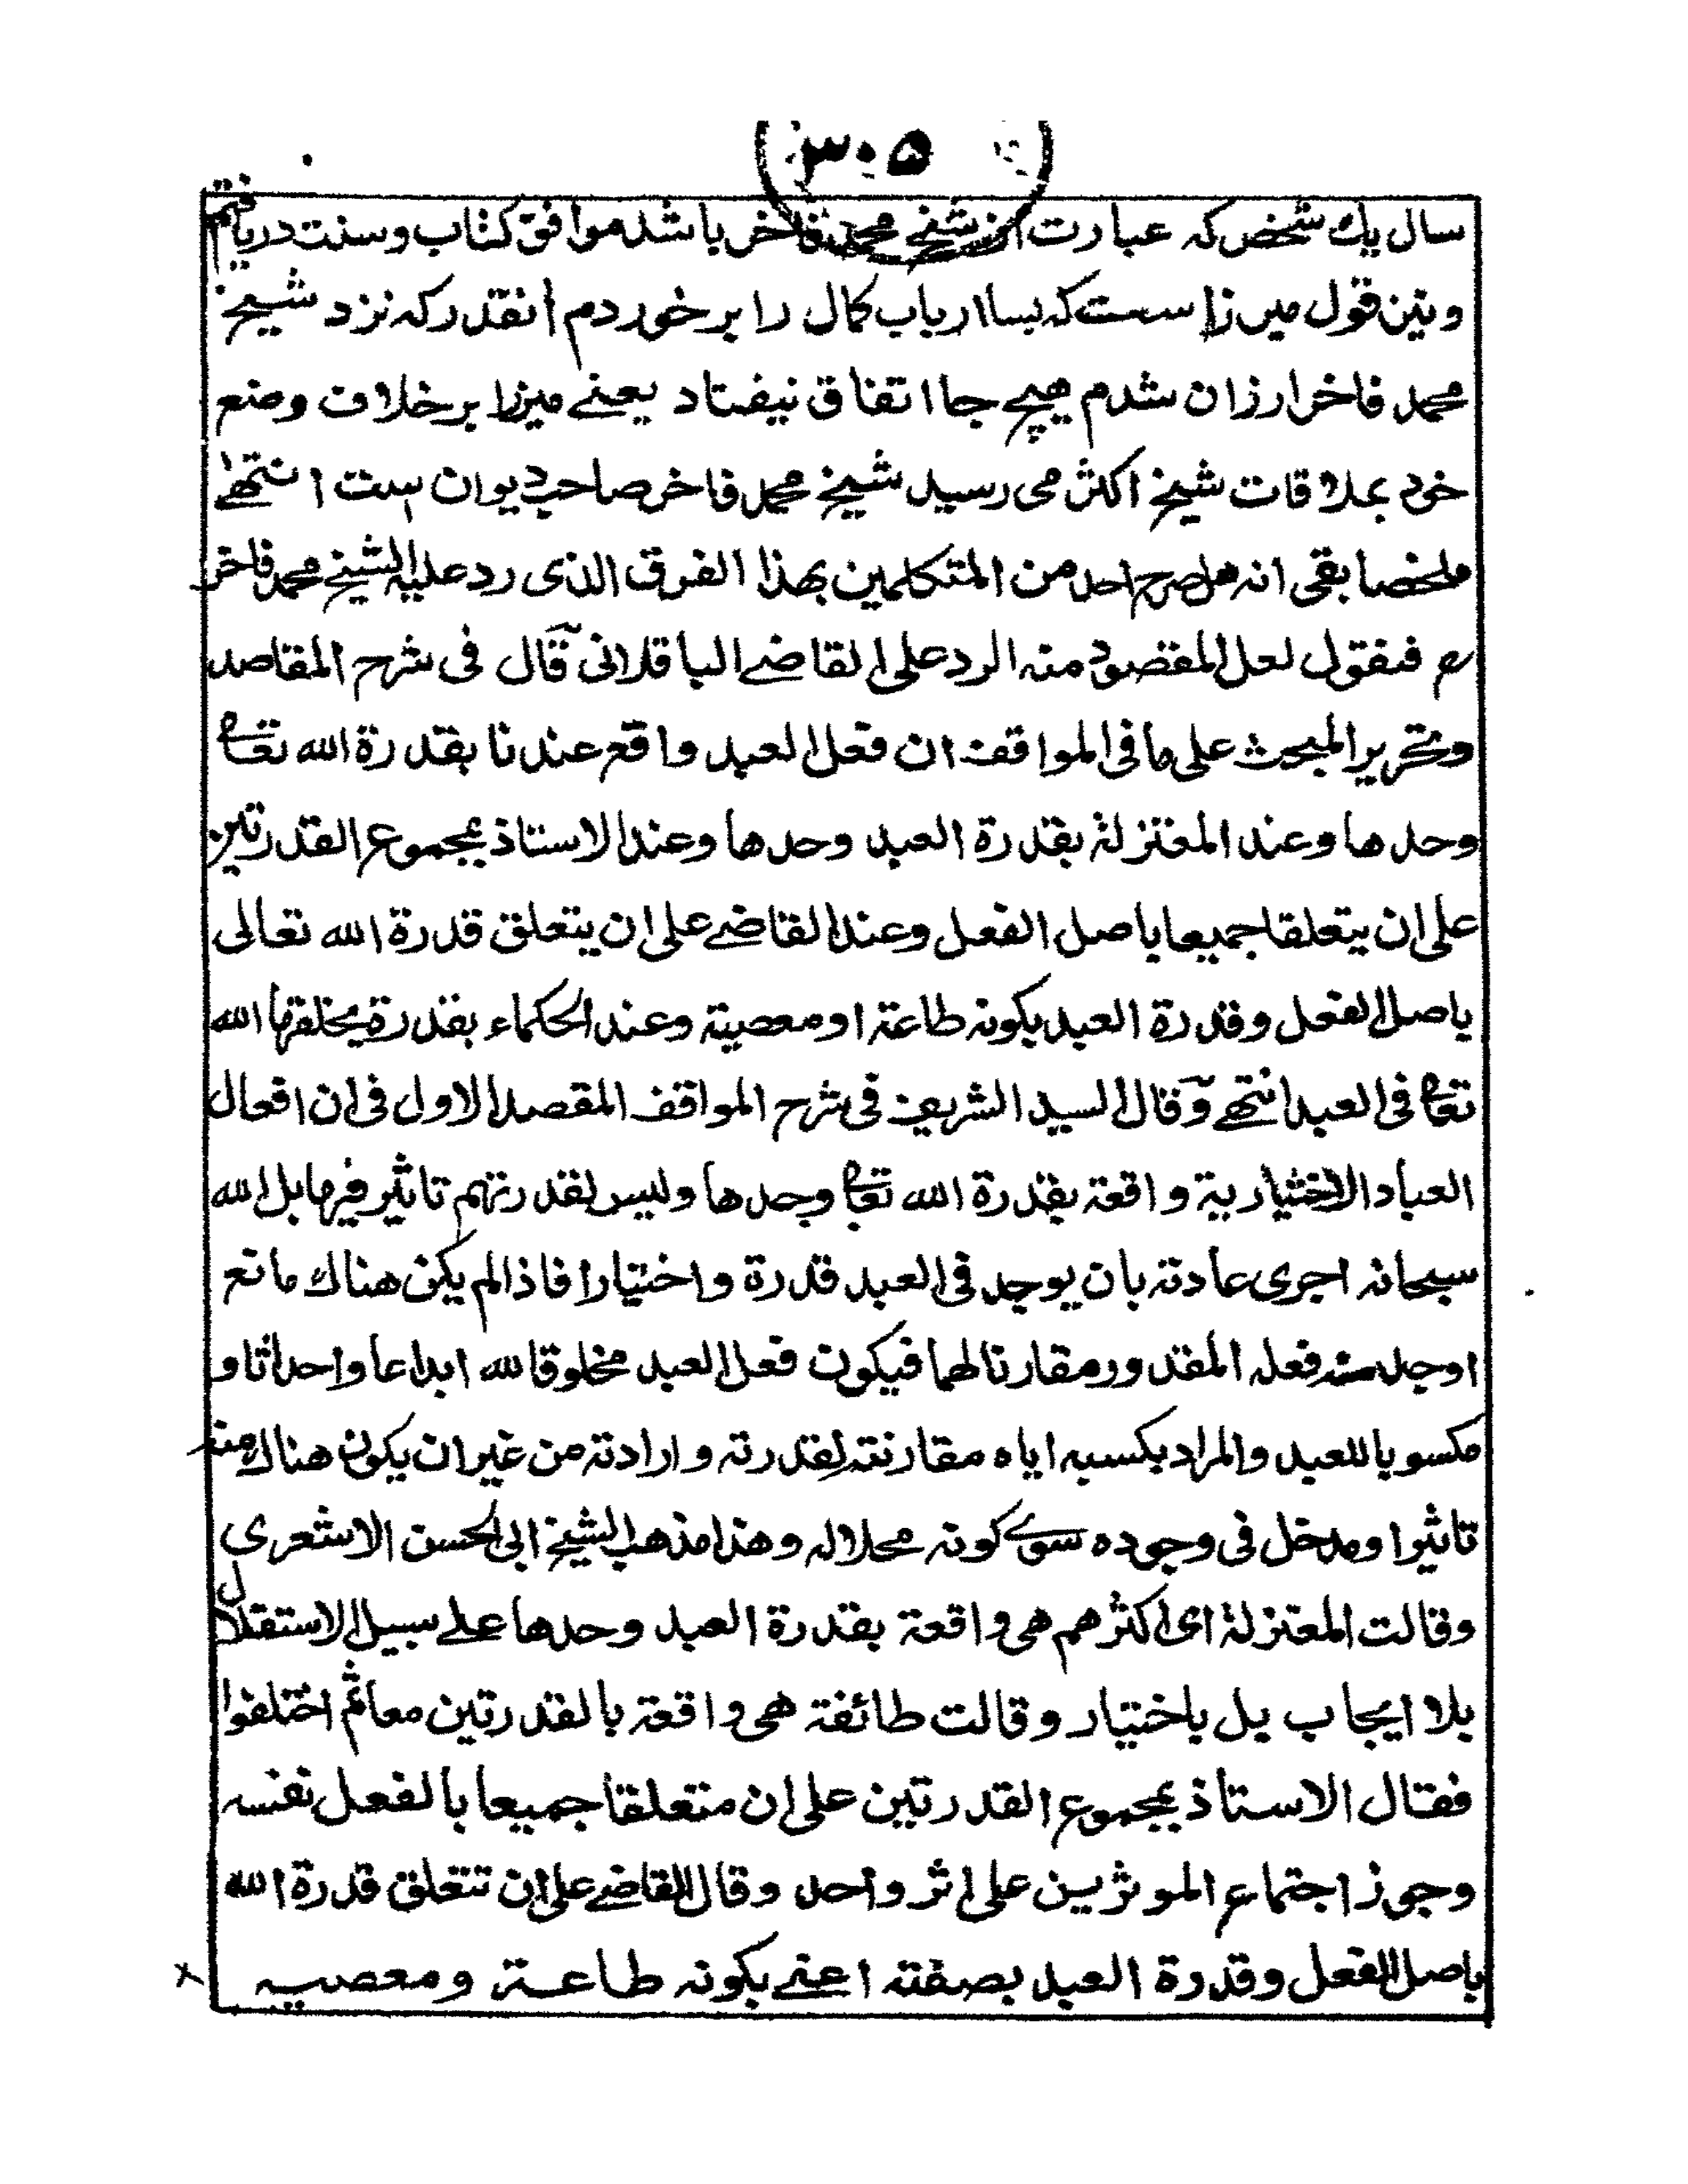 ٣٠٥
سال یك شخص كه عبارت از شیخ محمد فاخر باشد موافق كتاب و سنت دریافتم
و نیز قول میرزا ست كه بسا ارباب كمال را برخوردم انقدر كه نزد شیخ
محمد فاخر ارزان شدم هیچ جا اتفاق نیفتاد یعنے میرزا برخلاف وضع
خود بملاقات شیخ اكثر می رسید شیخ محمد فاخر صاحب دیوان ست انتهے
ملخصا بقی انه هل صرح احد من المتكلمین بهذا الفرق الذی رد علیه الشیخ محمد فاخر
رح فنقول لعل المقصود منه الرد علی القاضے الباقلانی قال فی شرح المقاصد
وتحریر المبحث علی ما فی المواقف ان فعل العبد واقع عندنا بقدرة الله تعالے
وحدها وعند المعتزلة بقدرة العبد وحدها وعند الاستاذ بمجموع القدرتین
علی ان یتعلقا جمیعا باصل الفعل وعند القاضے علی ان یتعلق قدرة الله تعالی
باصل الفعل وقدرة العبد بكونه طاعة او معصیة وعند الحكماء بقدرة یخلقها الله
تعالے فی العبد انتهے وقال السید الشریف فی شرح المواقف المقصد الاول فی ان افعال
العباد الاختیاریة واقعة بقدرة الله تعالے وحدها ولیس لقدرتهم تاثیر فیها بل الله
سبحانه اجری عادته بان یوجد فی العبد قدرة واختیارا فاذا لم یكن هناك مانع
اوجد منه فعله المقدور مقارنا لهما فیكون فعل العبد مخلوقا لله ابداعا واحداثا و
مكسوبا للعبد والمراد بكسبه ایاه مقارنته لقدرته وارادته من غیر ان یكون هناك منه
تاثیرا ومدخل فی وجوده سوے كونه محلا له وهذا مذهب الشیخ ابی الحسن الاشعری
وقالت المعتزلة ای اكثرهم هی واقعة بقدرة العبد وحدها علے سبیل الاستقلال
بلا ایجاب بل باختیار وقالت طائفة هی واقعة بالقدرتین معا ثم اختلفوا
فقال الاستاذ بمجموع القدرتین علی ان متعلقا جمیعا بالفعل نفسه
وجوز اجتماع الموثرین علی اثر واحد وقال القاضے علی ان تتعلق قدرة الله
باصل الفعل وقدرة العبد بصفته اعنے بكونه طاعة ومعصیه